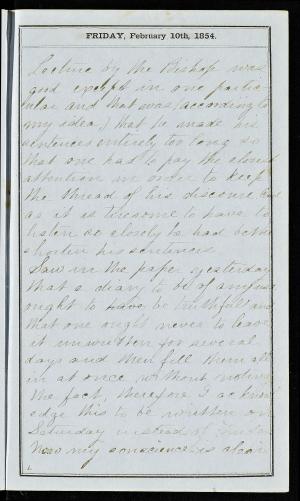 FRIDAY, February 10th, 1854.
Lecture by the Bishop was
good except in one particu-
lar and that was (according to
my idea,) that he made his
sentences entirely too long so
that one had to pay the closest
attention in order to keep
the thread of his discourse and
as it is tiresome to have to
listen so closely he had better
shorten his sentences.
Saw in the paper yesterday
that a diary to be of any use
ought to have be truthful and
that one ought never to leave
it unwritten for several
days and then fill them all
in at once without noticing
the fact, therefore I acknowl
edge this to be written on
Saturday instead of Friday
Now my conscience is clear